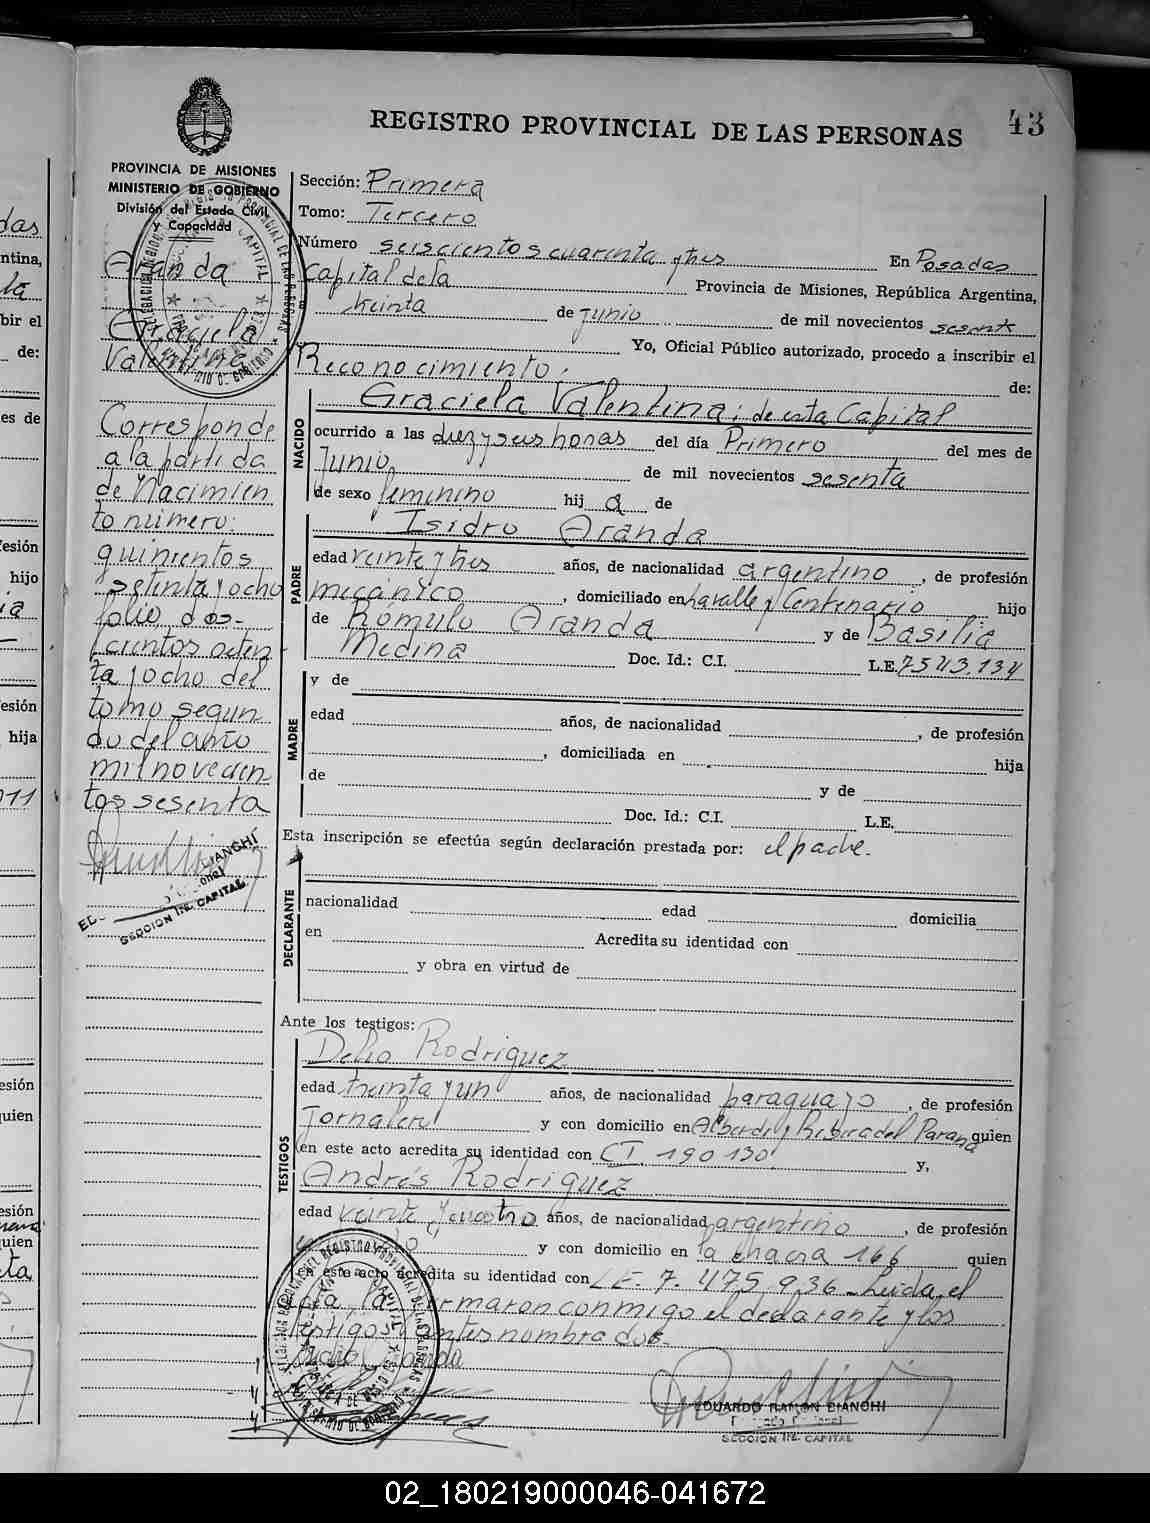 43
REGISTRO PROVINCIAL DE LAS PERSONAS
PROVINCIA DE MISIONES
MINISTERIO DE GOBIERNO
División del Estado Civil
y Capacidad
Aranda
Graciela
Valentina
Corresponde
a la partida
de Nacimien
to número:
quinientos
setenta y ocho
folio dos-
cientos ochen-
ta y ocho del
tomo segun
do del año
mil novecien
tos sesenta
BIANCHI
SECCION 1ra. CAPITAL
Sección: Primera
Tomo: Tercero
Número seiscientos cuarenta y tres En Posadas
Capital de la Provincia de Misiones, República Argentina,
treinta de Junio de mil novecientos sesenta
Yo, Oficial Público autorizado, procedo a inscribir el
Reconocimiento. de:
NACIDO
Graciela Valentina; de esta Capital
ocurrido a las diez y seis horas del día Primero del mes de
Junio de mil novecientos sesenta
de sexo femenino hij a de
PADRE
Isidro Aranda
edad veinte y tres años, de nacionalidad argentino, de profesión
mecánico, domiciliado en Lavalle y Centenario hijo
de Rómulo Aranda y de Basilia
Medina Doc. Id.: C.I. L.E. 7543.134
MADRE
y de
edad años, de nacionalidad , de profesión
, domiciliada en hija
de y de
Doc. Id.: C.I. L.E.
Esta inscripción se efectúa según declaración prestada por: el padre.
DECLARANTE
nacionalidad edad domicilia
en Acredita su identidad con
y obra en virtud de
Ante los testigos:
TESTIGOS
Delio Rodriguez
edad treinta y un años, de nacionalidad paraguayo, de profesión
Jornalero y con domicilio en Alberdi y Ribera del Parana quien
en este acto acredita su identidad con CI. 190130. y,
Andrés Rodriguez
edad veinte y cuatro años, de nacionalidad argentino, de profesión
y con domicilio en la chacra 166 quien
en este acto acredita su identidad con L.E. 7.475.936 Leida el
acta, la firmaron conmigo el declarante y los
testigos antes nombrados.
Isidro Aranda
EDUARDO RAMON BIANCHI
SECCION 1ra. CAPITAL
02_180219000046-041672